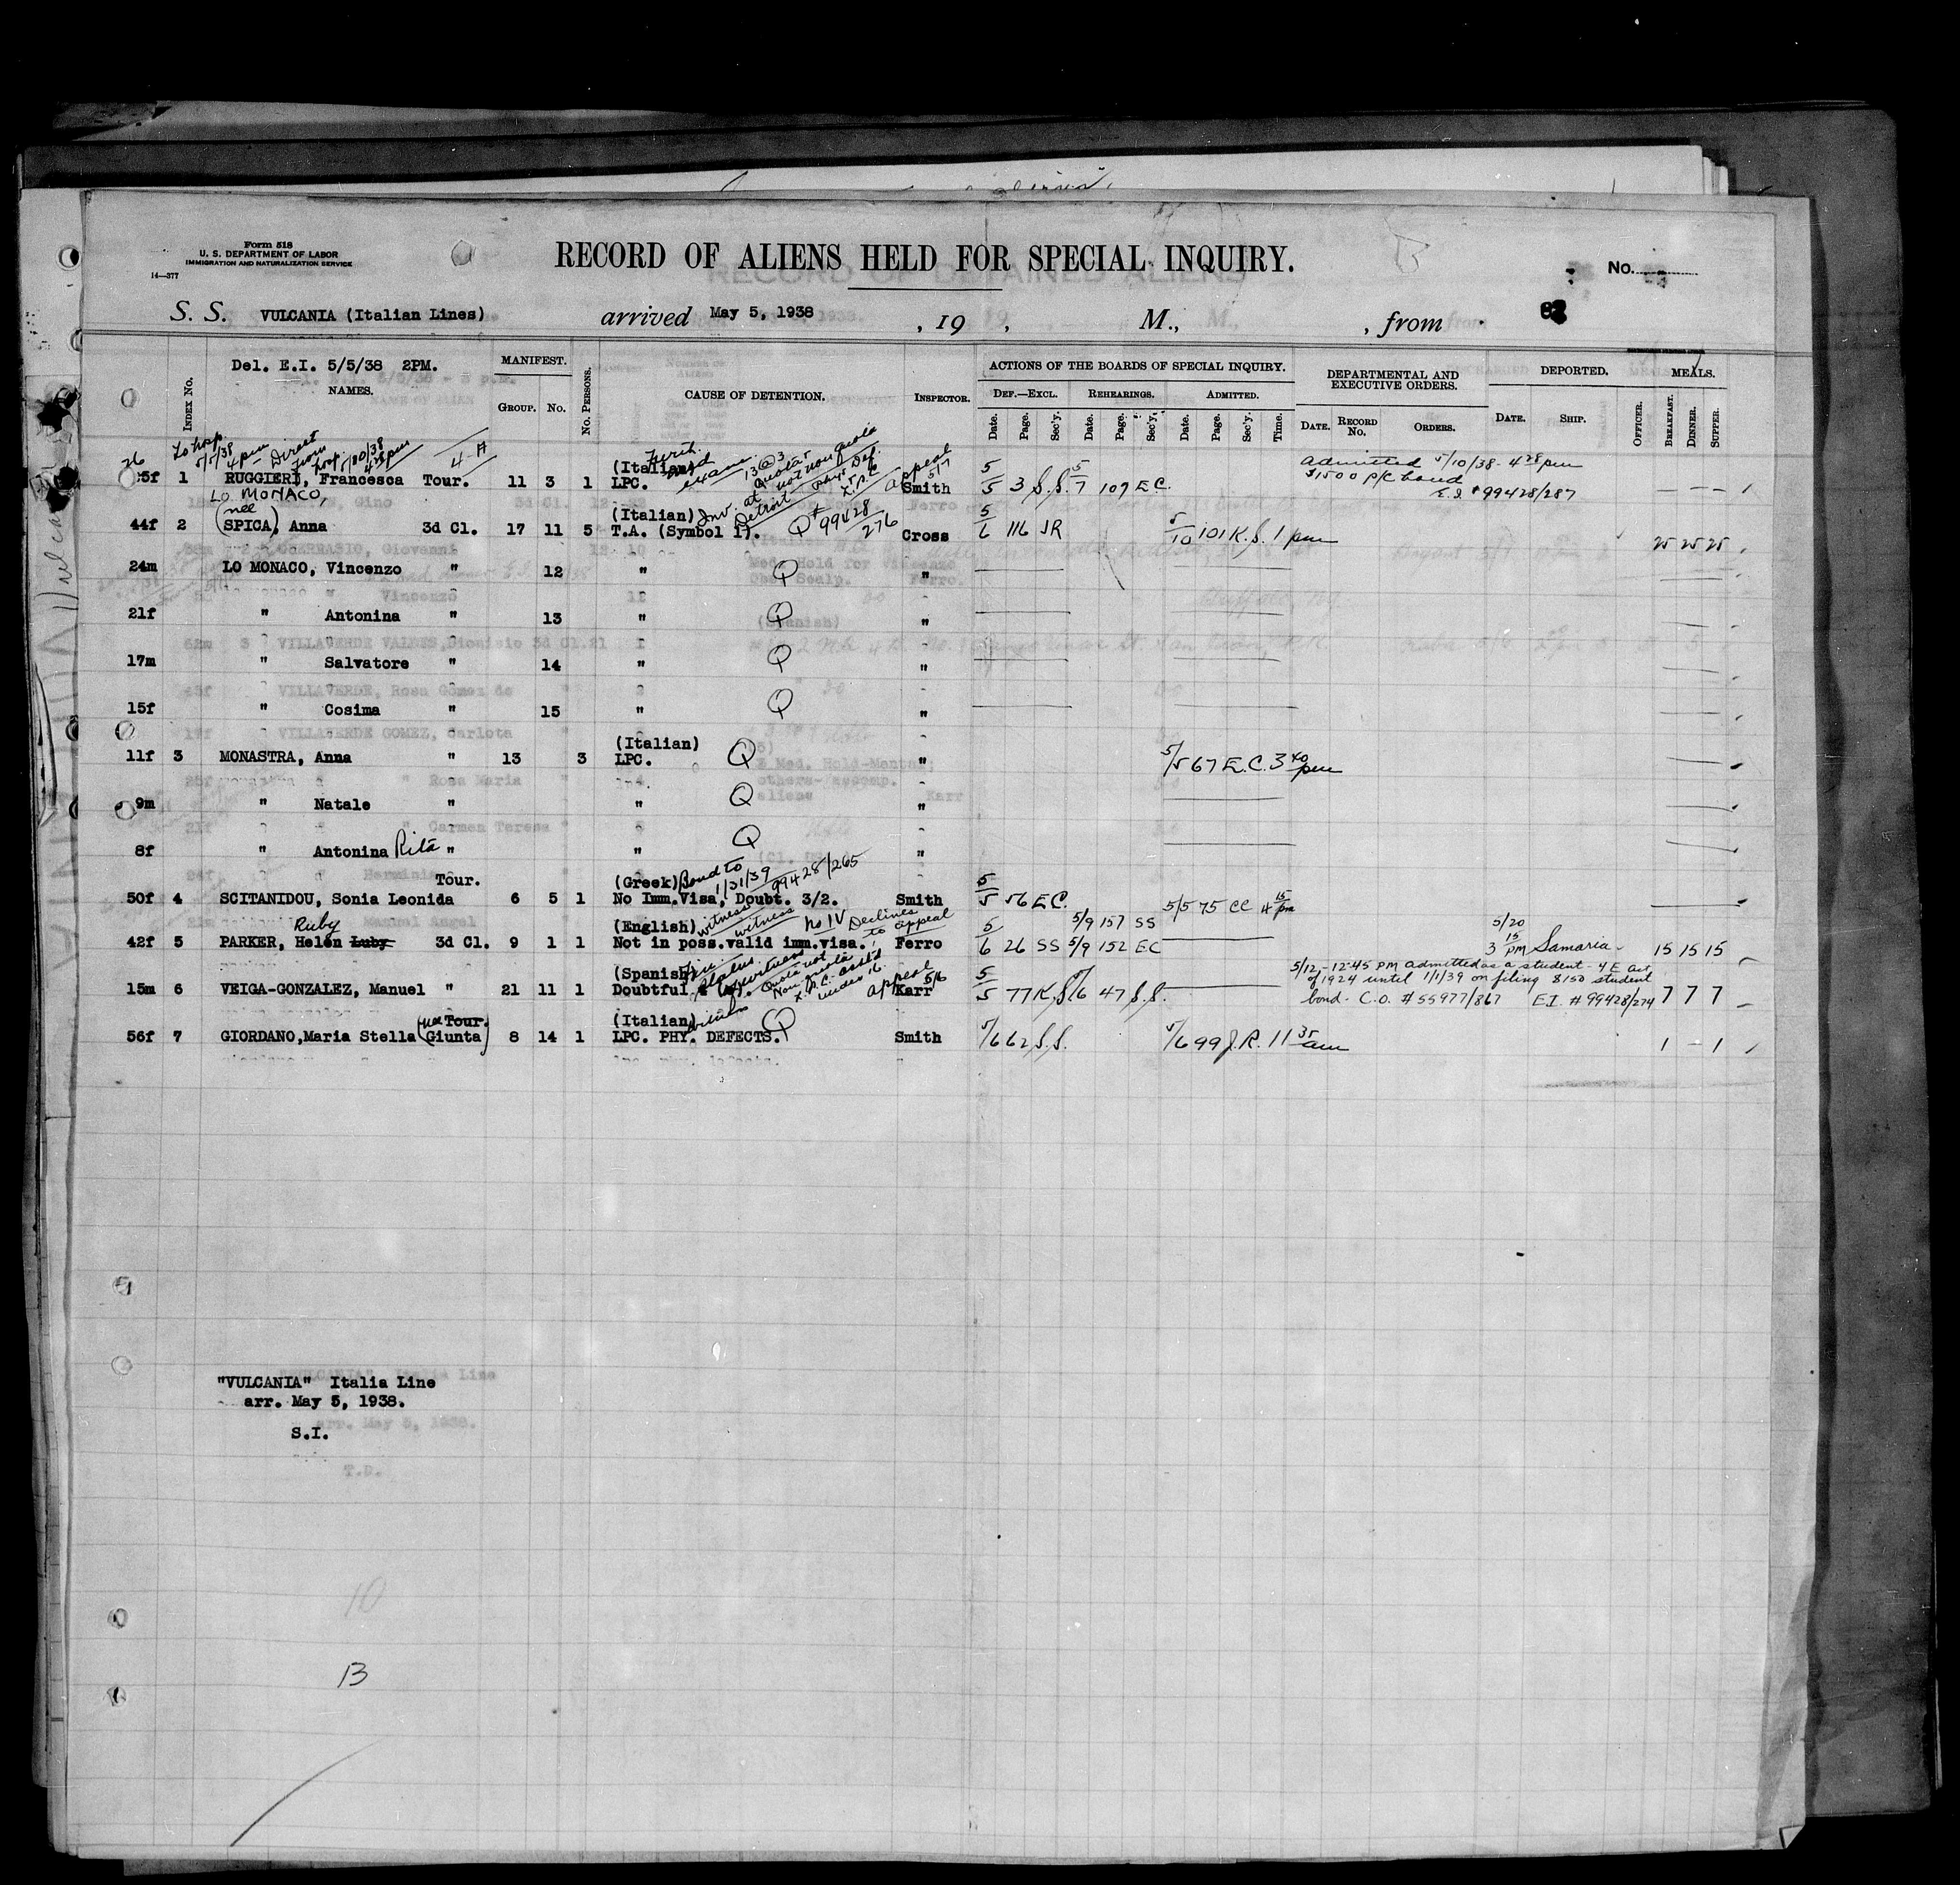 Form 518
U. S. DEPARTMENT OF LABOR
IMMIGRATION AND NATURALIZATION SERVICE
14—377
RECORD OF ALIENS HELD FOR SPECIAL INQUIRY.
No.
S. S. VULCANIA (Italian Lines) arrived May 5, 1938 , 19 , M., , from
Del. E.I. 5/5/38 2PM.
INDEX NO. NAMES. MANIFEST. GROUP. NO. NO. PERSONS. CAUSE OF DETENTION. INSPECTOR. ACTIONS OF THE BOARDS OF SPECIAL INQUIRY. DEPARTMENTAL AND EXECUTIVE ORDERS. DEPORTED. MEALS.
DEF.—EXCL. REHEARINGS. ADMITTED.
Date. Page. Sec'y. Date. Page. Sec'y. Date. Page. Sec'y. Time. DATE. RECORD NO. ORDERS. DATE. SHIP. OFFICER. BREAKFAST. DINNER. SUPPER.
26 To hosp. 5/5/38 4pm Direct from hosp. 4-A
(Italian) Appeal 5/7 Admitted 5/10/38 - 4 28 pm
5f 1 RUGGIERI, Francesca Tour. 11 3 1 LPC. Smith 5/5 3 S.S. 5/7 107 E.C. $1500 p/c bond
E.I. # 99428/287
LO MONACO,
(née (Italian) Inv. at Detroit
44f 2 SPICA) Anna 3d Cl. 17 11 5 T.A. (Symbol 1). Q # 99428/276 Cross 5/6 116 JR 5/10 101 K.S. 1 pm 25 25 25
24m LO MONACO, Vincenzo " 12 " Q "
21f " Antonina " 13 " Q "
17m " Salvatore " 14 " Q "
15f " Cosima " 15 " Q "
(Italian)
11f 3 MONASTRA, Anna " 13 3 LPC. Q " 5/5 67 E.C. 3 40 pm
9m " Natale " " Q "
8f " Antonina Rita " " Q "
Tour. (Greek) Bond to 1/31/39 99428/265
50f 4 SCITANIDOU, Sonia Leonida 6 5 1 No Imm.Visa, Doubt. 3/2. Smith 5/5 56 E.C. 5/5 75 CC 4 15 pm
Ruby (English) witness witness no IV Declines to appeal 5/9 157 SS 5/20
42f 5 PARKER, Helen Luby 3d Cl. 9 1 1 Not in poss.valid imm.visa. Ferro 5/6 26 SS 5/9 152 EC 3 15 PM Samaria 15 15 15
(Spanish) Appeal 5/6 5/12 - 12:45 PM admitted as a student - 4 E act
15m 6 VEIGA-GONZALEZ, Manuel " 21 11 1 Doubtful Karr 5/5 77 K.S. 5/6 47 S.S. of 1924 until 1/1/39 on filing $150 student
bond - C.O. # 55977/867 E.I. # 99428/274 7 7 7
(née Tour. (Italian) witness
56f 7 GIORDANO,Maria Stella Giunta) 8 14 1 LPC. PHY. DEFECTS. Q Smith 5/6 62 S.S. 5/6 99 J.R. 11 35 am 1 – 1
"VULCANIA" Italia Line
arr. May 5, 1938.
S.I.
T.D.
10
13